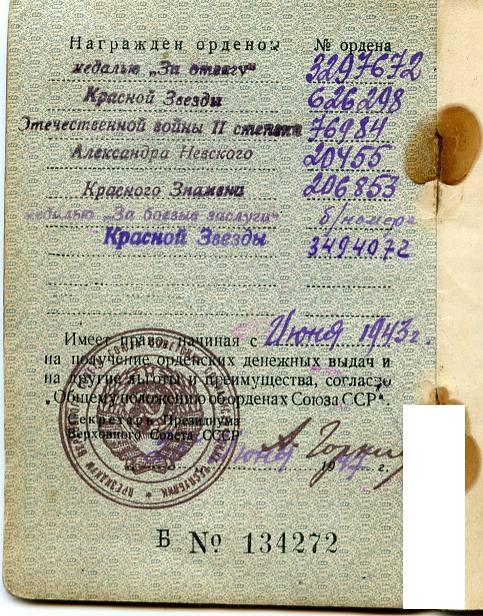 Награжден орденом № ордена
медалью „За отвагу“ 3297672
Красной Звезды 626298
Отечественной войны II степени 76984
Александра Невского 20455
Красного Знамени 206853
медалью „За боевые заслуги“ б/номера
Красной Звезды 3494072
Имеет право, начиная с Июня 1943 г.
на получение орденских денежных выдач и
на другие льготы и преимущества, согласно
„Общему положению об орденах Союза ССР“.
Секретарь Президиума
Верховного Совета СССР
А. Горкин
июня 1947 г.
Б № 134272